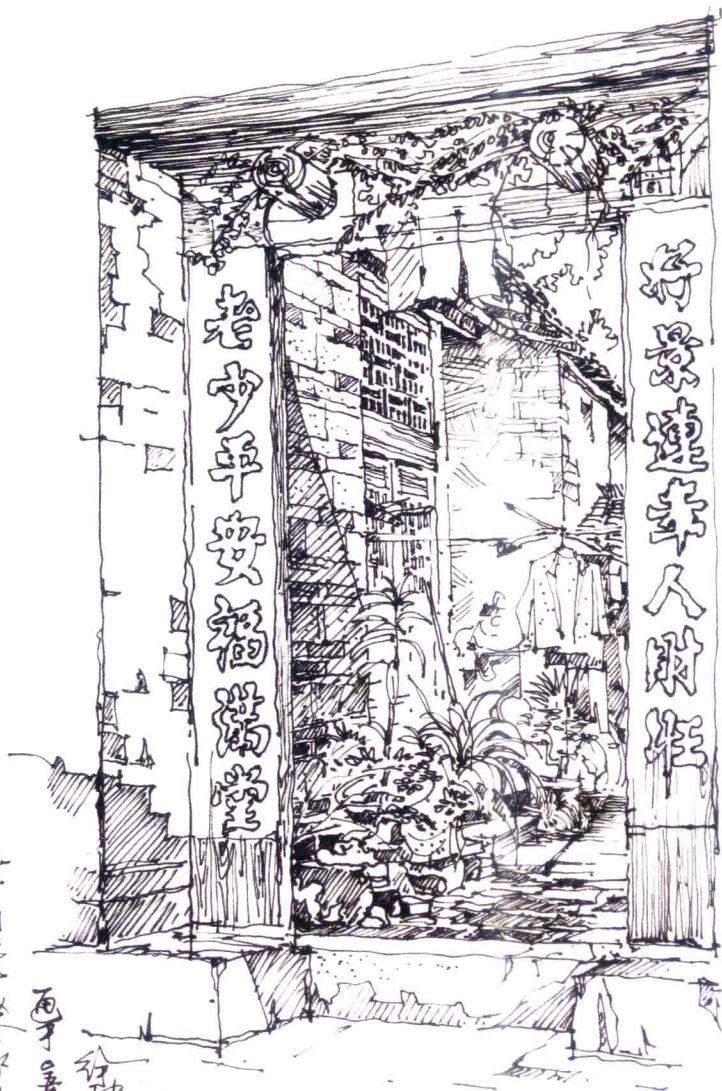 好景連年人財旺
老少平安福满堂